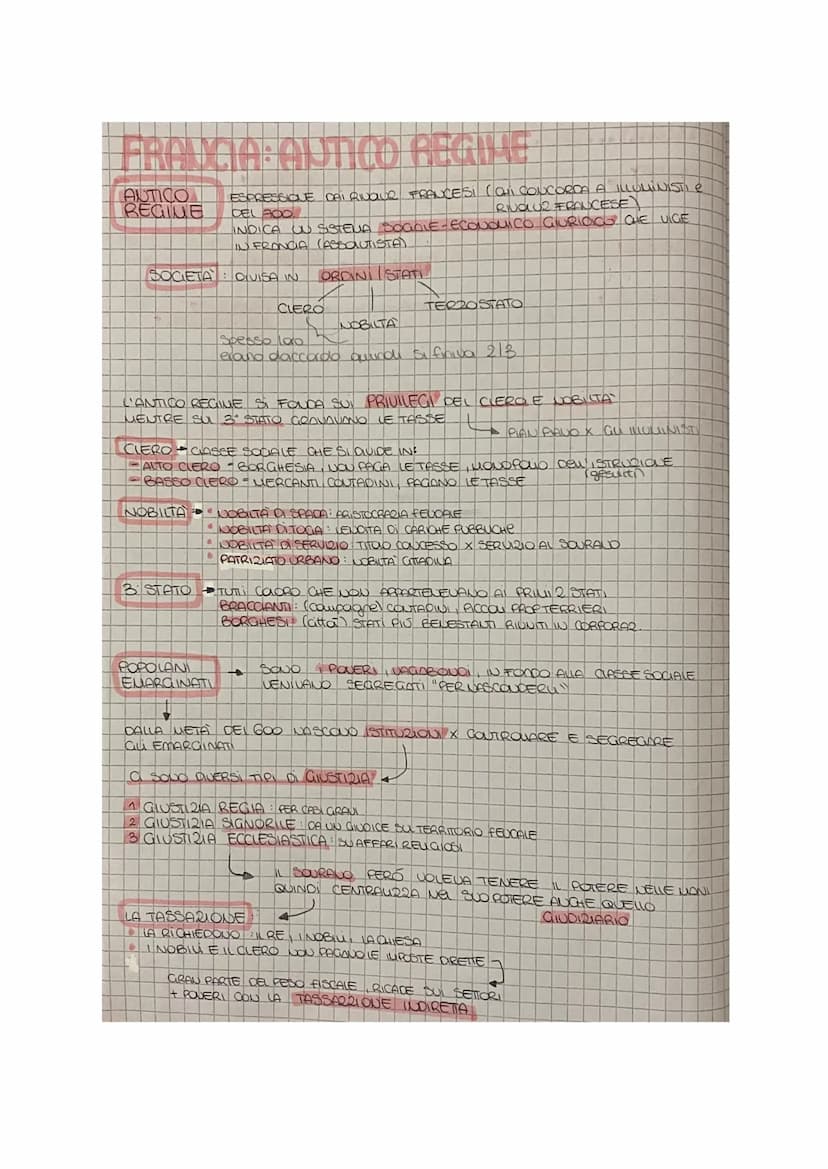 FRANCIA: ANTICO REGIME
ANTICO REGIME
ESPRESSIONE DAI RIVOLUZ FRANCESI (CHI CONCORDA A ILLUMINISTI E RIVOLUZ FRANCESE)
DEL 700
INDICA UN SISTEMA SOCIALE-ECONOMICO GIURIDICO CHE VIGE
IN FRANCIA (ASSOLUTISTA)
SOCIETÀ: DIVISA IN ORDINI/STATI
CLERO NOBILTÀ TERZO STATO
spesso loro
erano d'accordo quindi si finiva 2/3
L'ANTICO REGIME SI FONDA SUI PRIVILEGI DEL CLERO E NOBILTÀ
MENTRE SU 3° STATO GRAVAVANO LE TASSE
X GLI ILLUMINISTI
CLERO → CLASSE SOCIALE CHE SI DIVIDE IN:
- ALTO CLERO = BORGHESIA, NON PAGA LE TASSE, MONOPOLIO DELL'ISTRUZIONE
(gesuiti)
- BASSO CLERO = MERCANTI, CONTADINI, PAGANO LE TASSE
NOBILTÀ → • NOBILTÀ DI SPADA: ARISTOCRAZIA FEUDALE
• NOBILTÀ DI TOGA: VENDITA DI CARICHE PUBBLICHE
• NOBILTÀ DI SERVIZIO: TITOLO CONCESSO X SERVIZIO AL SOVRANO
• PATRIZIATO URBANO: NOBILTÀ CITTADINA
3° STATO → TUTTI COLORO CHE NON APPARTENEVANO AI PRIMI 2 STATI
BRACCIANTI: (campagne) CONTADINI, PICCOLI PROP TERRIERI
BORGHESI: (città) STATI PIÙ BENESTANTI RIUNITI IN CORPORAZ.
POPOLANI EMARGINATI → SONO I POVERI, VAGABONDI, IN FONDO ALLA CLASSE SOCIALE
VENIVANO SEGREGATI "PER NASCONDERLI"
DALLA METÀ DEL 600 NASCONO ISTITUZIONI X CONTROLLARE E SEGREGARE
GLI EMARGINATI
CI SONO DIVERSI TIPI DI GIUSTIZIA
1 GIUSTIZIA REGIA: PER CASI GRAVI
2 GIUSTIZIA SIGNORILE: DA UN GIUDICE SUL TERRITORIO FEUDALE
3 GIUSTIZIA ECCLESIASTICA: SU AFFARI RELIGIOSI
IL SOVRANO PERÒ VOLEVA TENERE IL POTERE NELLE MANI
QUINDI CENTRALIZZA NEL SUO POTERE ANCHE QUELLO
GIUDIZIARIO
LA TASSAZIONE
• LA RICHIEDONO: IL RE, I NOBILI, LA CHIESA
• I NOBILI E IL CLERO NON PAGANO LE IMPOSTE DIRETTE
GRAN PARTE DEL PESO FISCALE, RICADE SUI SETTORI
+ POVERI CON LA TASSAZIONE INDIRETTA